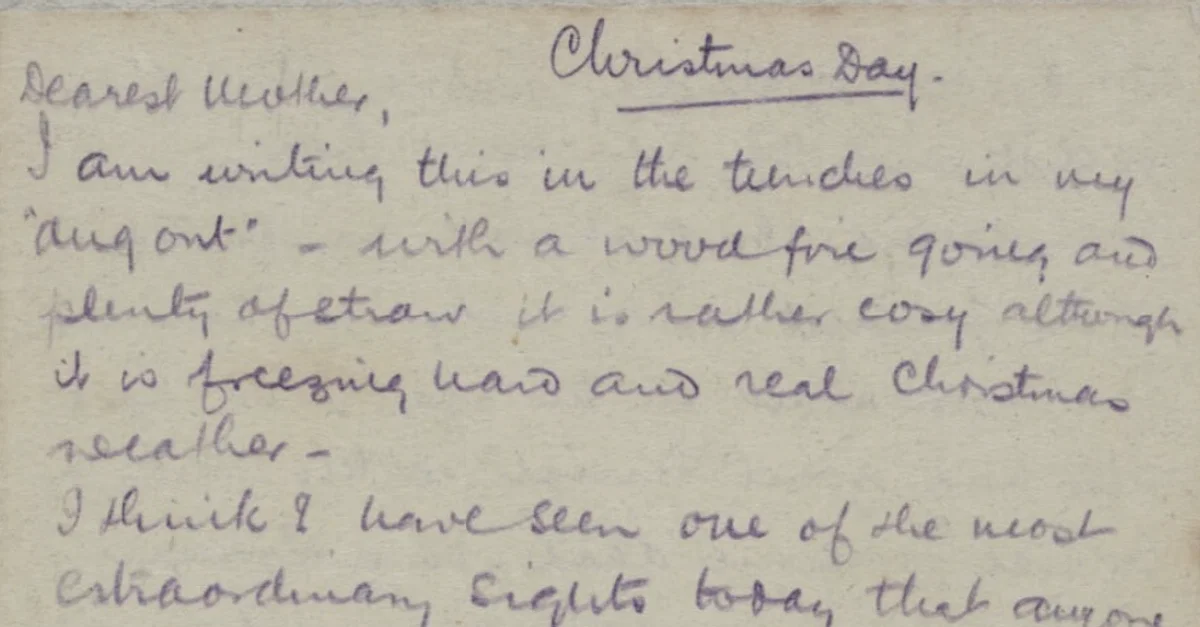 Christmas Day.
Dearest Mother,
I am writing this in the trenches in my
"dug out" - with a wood fire going and
plenty of straw it is rather cosy although
it is freezing hard and real Christmas
weather -
I think I have seen one of the most
extraordinary sights today that anyone